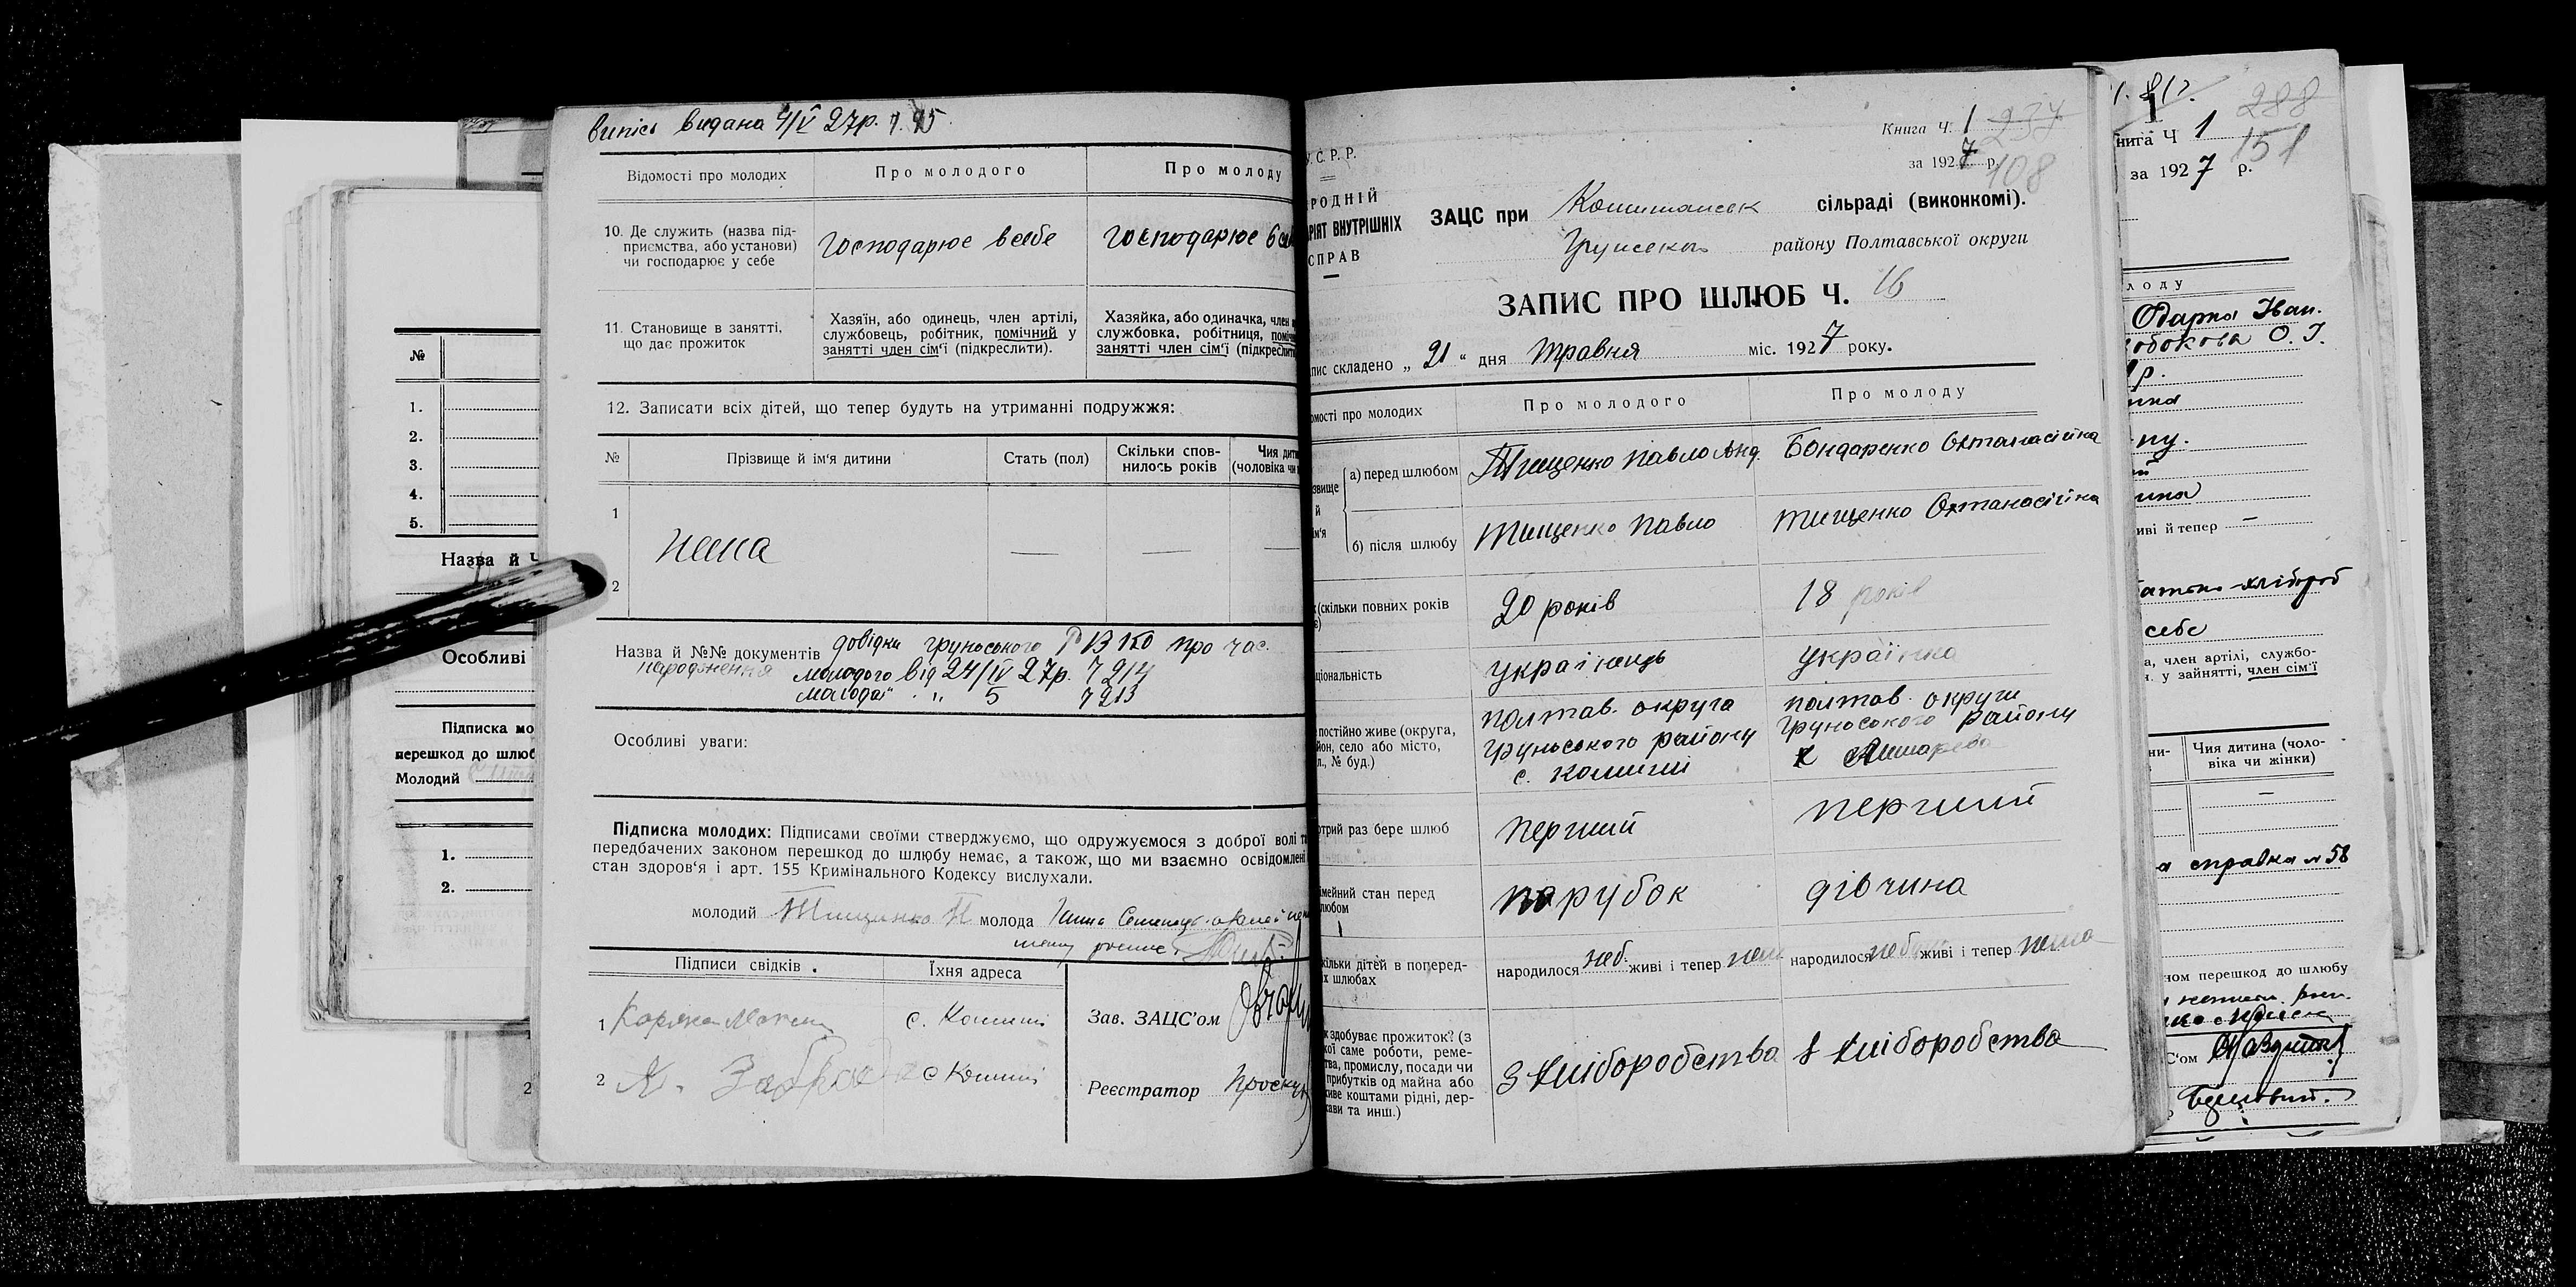 №
1.
2.
3.
4.
5.
Назва й Ч
Особливі
Підписка мо
перешкод до шлюб
Молодий
1.
2.
2
випись видана 4/V 27р. 95
Відомості про молодих
Про молодого
Про молоду
10. Де служить (назва під-
приємства, або установи)
чи господарює у себе
господарює в себе
господарює
11. Становище в занятті,
що дає прожиток
Хазяїн, або одинець, член артілі,
службовець, робітник, помічний у
занятті член сім'ї (підкреслити).
Хазяйка, або одиначка, член
службовка, робітниця,
занятті член сім'ї
12. Записати всіх дітей, що тепер будуть на утриманні подружжя:
№
Прізвище й ім'я дитини
Стать (пол)
Скільки спов-
нилось років
Чия дит
(чоловіка чи
1
нема
— — —
2
Назва й №№ документів довідки грунського РВКО про час.
народження молодого від 24/IV 27р. 214
молода " " 5 213
Особливі уваги:
Підписка молодих: Підписами своїми стверджуємо, що одружуємося з доброї волі
передбачених законом перешкод до шлюбу немає, а також, що ми взаємно освідомлені
стан здоров'я і арт. 155 Кримінального Кодексу вислухали.
молодий Тищенко П молода
Підписи свідків
Їхня адреса
1
с. Комиші
2
с Комиші
Зав. ЗАЦС'ом
Реєстратор
У.С.Р.Р.
РОДНІЙ
РІЯТ ВНУТРІШНІХ
СПРАВ
Книга Ч. 1 237
за 1927 р. 108
ЗАЦС при Комишанськ сільраді (виконкомі).
Грунськ району Полтавської округи
ЗАПИС ПРО ШЛЮБ Ч. 16
пис складено „21" дня травня міс. 1927 року.
омості про молодих
Про молодого
Про молоду
звище
й
м'я
а) перед шлюбом
Тищенко Павло Анд.
Бондаренко
б) після шлюбу
Тищенко Павло
Тищенко
(скільки повних років
20 років
18 років
ціональність
українець
українка
постійно живе (округа,
йон, село або місто,
л., № буд.)
полтав. округа
Груньського району
с. Комиші
полтав. округи
Груньского району
отрий раз бере шлюб
перший
перший
імейний стан перед
любом
парубок
дівчина
кільки дітей в поперед-
х шлюбах
народилося неб. живі і тепер нема
народилося неб живі і тепер нема
к здобуває прожиток? (з
кої саме роботи, реме-
тва, промислу, посади чи
прибутків од майна або
живе коштами рідні, дер-
жави та инш.)
з хліборобства
з хліборобства
нига Ч 1 288
за 1927 р. 151
лоду
Одарка Іван.
О. І.
р.
ну.
иві й тепер —
хлібороб
себе
а, член артілі, службо-
у зайнятті, член сім'ї
ни-
Чия дитина (чоло-
віка чи жінки)
—
а справка № 58
ном перешкод до шлюбу
С'ом